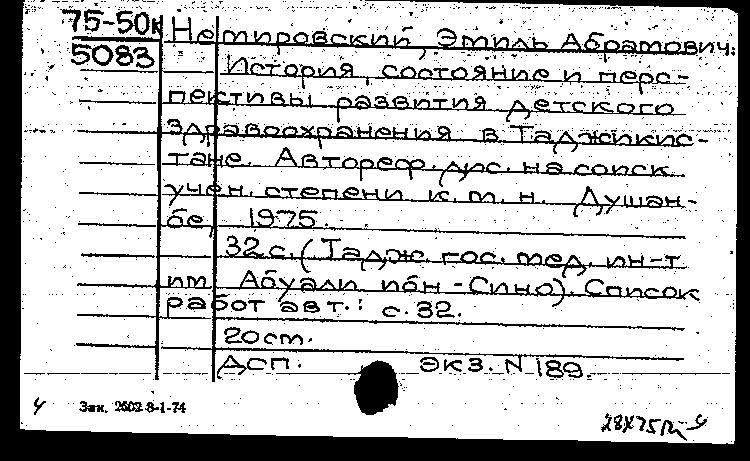 75-50к
5083
Немировский, Эмиль Абрамович.
История, состояние и перс-
пективы развития детского
здравоохранения в Таджикис-
тане. Автореф. дис. на соиск.
учен. степени к. м. н. Душан-
бе, 1975.
32 с. (Тадж. гос. мед. ин-т
им. Абуали ибн-Сино). Список
работ авт.: с. 32.
20 см.
ДСП. ЭКЗ. N 189.
4 Зак. 2602 8-1-74